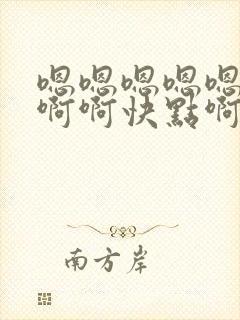 嗯嗯嗯嗯嗯
啊啊快點啊
南方岸